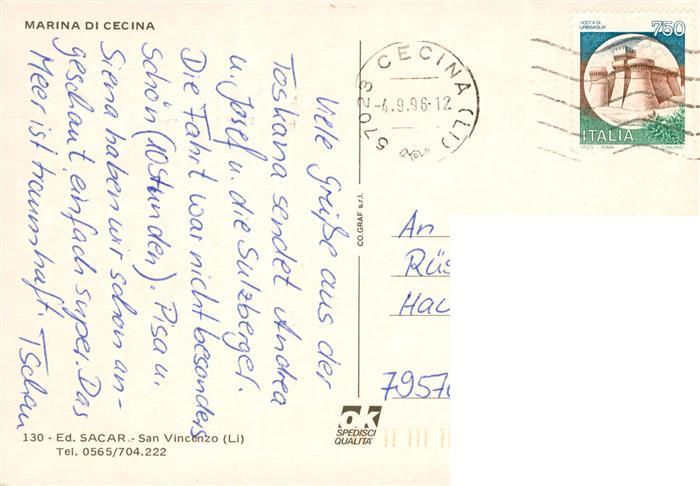 MARINA DI CECINA
Viele Grüße aus der
Toskana sendet Andrea
u. Josef u. die Sulzberger.
Die Fahrt war nicht besonders
schön (10 Stunden). Pisa u.
Siena haben wir schon an-
geschaut, einfach super. Das
Meer ist traumhaft. Tschau
130 - Ed. SACAR - San Vincenzo (Li)
Tel. 0565/704.222
CO.GRAF s.r.l.
57023 CECINA (LI)
-4.9.96-12
ROCCA DI
URBISAGLIA
750
ITALIA
I.P.Z.S. - ROMA
An
Rüs
Hau
7957
ok
SPEDISCI
QUALITÀ